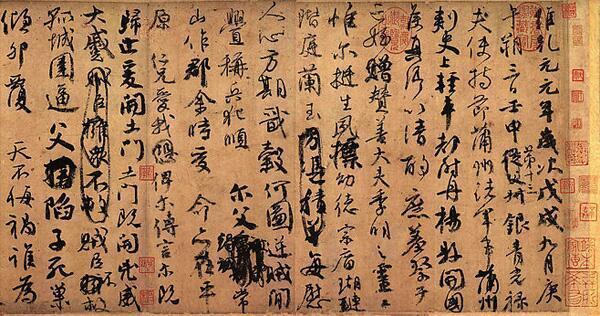 維乾元元年歲次戊戌九月庚
午朔三日壬申第十三從父叔銀青光祿
夫使持節蒲州諸軍事蒲州
刺史上輕車都尉丹楊縣開國
侯真卿以清酌庶羞祭于
亡姪贈贊善大夫季明之靈曰
惟爾挺生夙標幼德宗廟瑚璉
階庭蘭玉方憑積善每慰
人心方期戩穀何圖逆賊閒
釁稱兵犯順爾父竭誠常
山作郡余時受命亦在平
原仁兄愛我俾爾傳言爾既
歸止爰開土門土門既開凶威
大蹙賊臣擁衆不救賊臣不救
孤城圍逼父陷子死巢
傾卵覆天不悔禍誰為